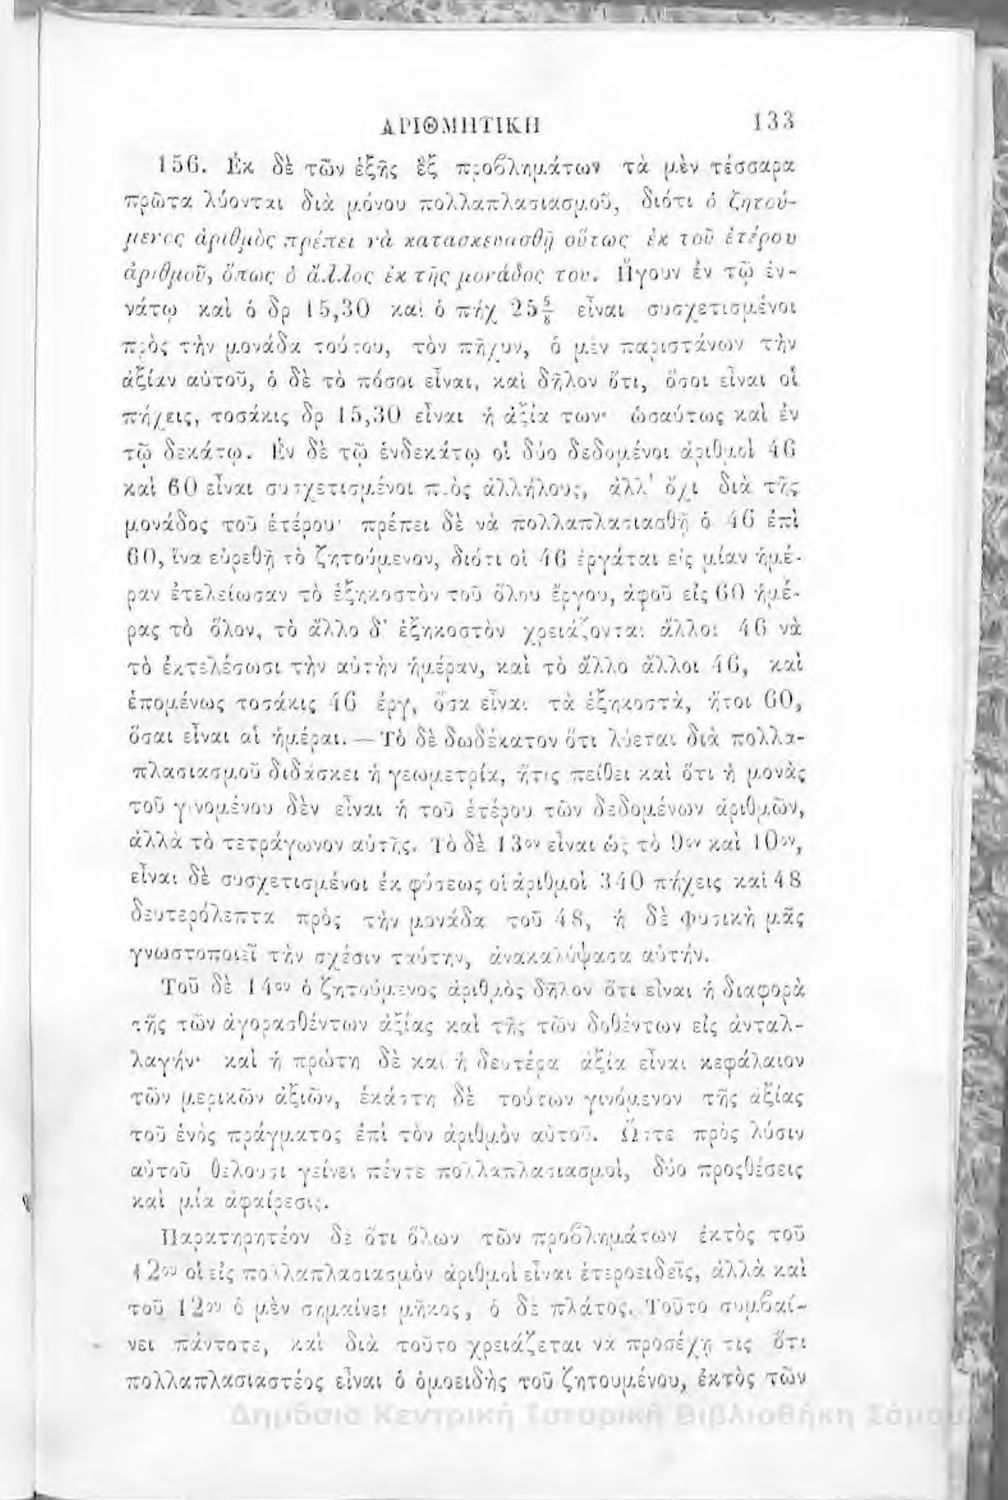 ΑΡΙΘΜΗΤΙΚΗ 133
156. Ἐκ δὲ τῶν ἑξῆς ἓξ προβλημάτων τὰ μὲν τέσσαρα
πρῶτα λύονται διὰ μόνου πολλαπλασιασμοῦ, διότι ὁ ζητού-
μενος ἀριθμὸς πρέπει νὰ κατασκευασθῇ οὕτως ἐκ τοῦ ἑτέρου
ἀριθμοῦ, ὅπως ὁ ἄλλος ἐκ τῆς μονάδος του. Ἤγουν ἐν τῷ ἐν-
νάτῳ καὶ ὁ δρ 15,30 καὶ ὁ πήχ 25 5/8 εἶναι συσχετισμένοι
πρὸς τὴν μονάδα τούτου, τὸν πῆχυν, ὁ μὲν παριστάνων τὴν
ἀξίαν αὐτοῦ, ὁ δὲ τὸ πόσοι εἶναι, καὶ δῆλον ὅτι, ὅσοι εἶναι οἱ
πήχεις, τοσάκις δρ 15,30 εἶναι ἡ ἀξία των· ὡσαύτως καὶ ἐν
τῷ δεκάτῳ. Ἐν δὲ τῷ ἑνδεκάτῳ οἱ δύο δεδομένοι ἀριθμοὶ 46
καὶ 60 εἶναι συσχετισμένοι πρὸς ἀλλήλους, ἀλλ' ὄχι διὰ τῆς
μονάδος τοῦ ἑτέρου· πρέπει δὲ νὰ πολλαπλασιασθῇ ὁ 46 ἐπὶ
60, ἵνα εὑρεθῇ τὸ ζητούμενον, διότι οἱ 46 ἐργάται εἰς μίαν ἡμέ-
ραν ἐτελείωσαν τὸ ἑξηκοστὸν τοῦ ὅλου ἔργου, ἀφοῦ εἰς 60 ἡμέ-
ρας τὸ ὅλον, τὸ ἄλλο δ' ἑξηκοστὸν χρειάζονται ἄλλοι 46 νὰ
τὸ ἐκτελέσωσι τὴν αὐτὴν ἡμέραν, καὶ τὸ ἄλλο ἄλλοι 46, καὶ
ἑπομένως τοσάκις 46 ἐργ, ὅσα εἶναι τὰ ἑξηκοστὰ, ἤτοι 60,
ὅσαι εἶναι αἱ ἡμέραι. — Τὸ δὲ δωδέκατον ὅτι λύεται διὰ πολλα-
πλασιασμοῦ διδάσκει ἡ γεωμετρία, ἥτις πείθει καὶ ὅτι ἡ μονὰς
τοῦ γινομένου δὲν εἶναι ἡ τοῦ ἑτέρου τῶν δεδομένων ἀριθμῶν,
ἀλλὰ τὸ τετράγωνον αὐτῆς. Τὸ δὲ 13ον εἶναι ὡς τὸ 9ον καὶ 10ον,
εἶναι δὲ συσχετισμένοι ἐκ φύσεως οἱ ἀριθμοὶ 340 πήχεις καὶ 48
δευτερόλεπτα πρὸς τὴν μονάδα τοῦ 48, ἡ δὲ Φυσικὴ μᾶς
γνωστοποιεῖ τὴν σχέσιν ταύτην, ἀνακαλύψασα αὐτήν.
Τοῦ δὲ 14ου ὁ ζητούμενος ἀριθμὸς δῆλον ὅτι εἶναι ἡ διαφορὰ
τῆς τῶν ἀγορασθέντων ἀξίας καὶ τῆς τῶν δοθέντων εἰς ἀνταλ-
λαγήν· καὶ ἡ πρώτη δὲ καὶ ἡ δευτέρα ἀξία εἶναι κεφάλαιον
τῶν μερικῶν ἀξιῶν, ἑκάστη δὲ τούτων γινόμενον τῆς ἀξίας
τοῦ ἑνὸς πράγματος ἐπὶ τὸν ἀριθμὸν αὐτοῦ. Ὥστε πρὸς λύσιν
αὐτοῦ θέλουσι γείνει πέντε πολλαπλασιασμοὶ, δύο προςθέσεις
καὶ μία ἀφαίρεσις.
Παρατηρητέον δὲ ὅτι ὅλων τῶν προβλημάτων ἐκτὸς τοῦ
12ου οἱ εἰς πολλαπλασιασμὸν ἀριθμοὶ εἶναι ἑτεροειδεῖς, ἀλλὰ καὶ
τοῦ 12ου ὁ μὲν σημαίνει μῆκος, ὁ δὲ πλάτος. Τοῦτο συμβαί-
νει πάντοτε, καὶ διὰ τοῦτο χρειάζεται νὰ προσέχῃ τις ὅτι
πολλαπλασιαστέος εἶναι ὁ ὁμοειδὴς τοῦ ζητουμένου, ἐκτὸς τῶν
Δημόσια Κεντρική Ιστορική Βιβλιοθήκη Σάμου